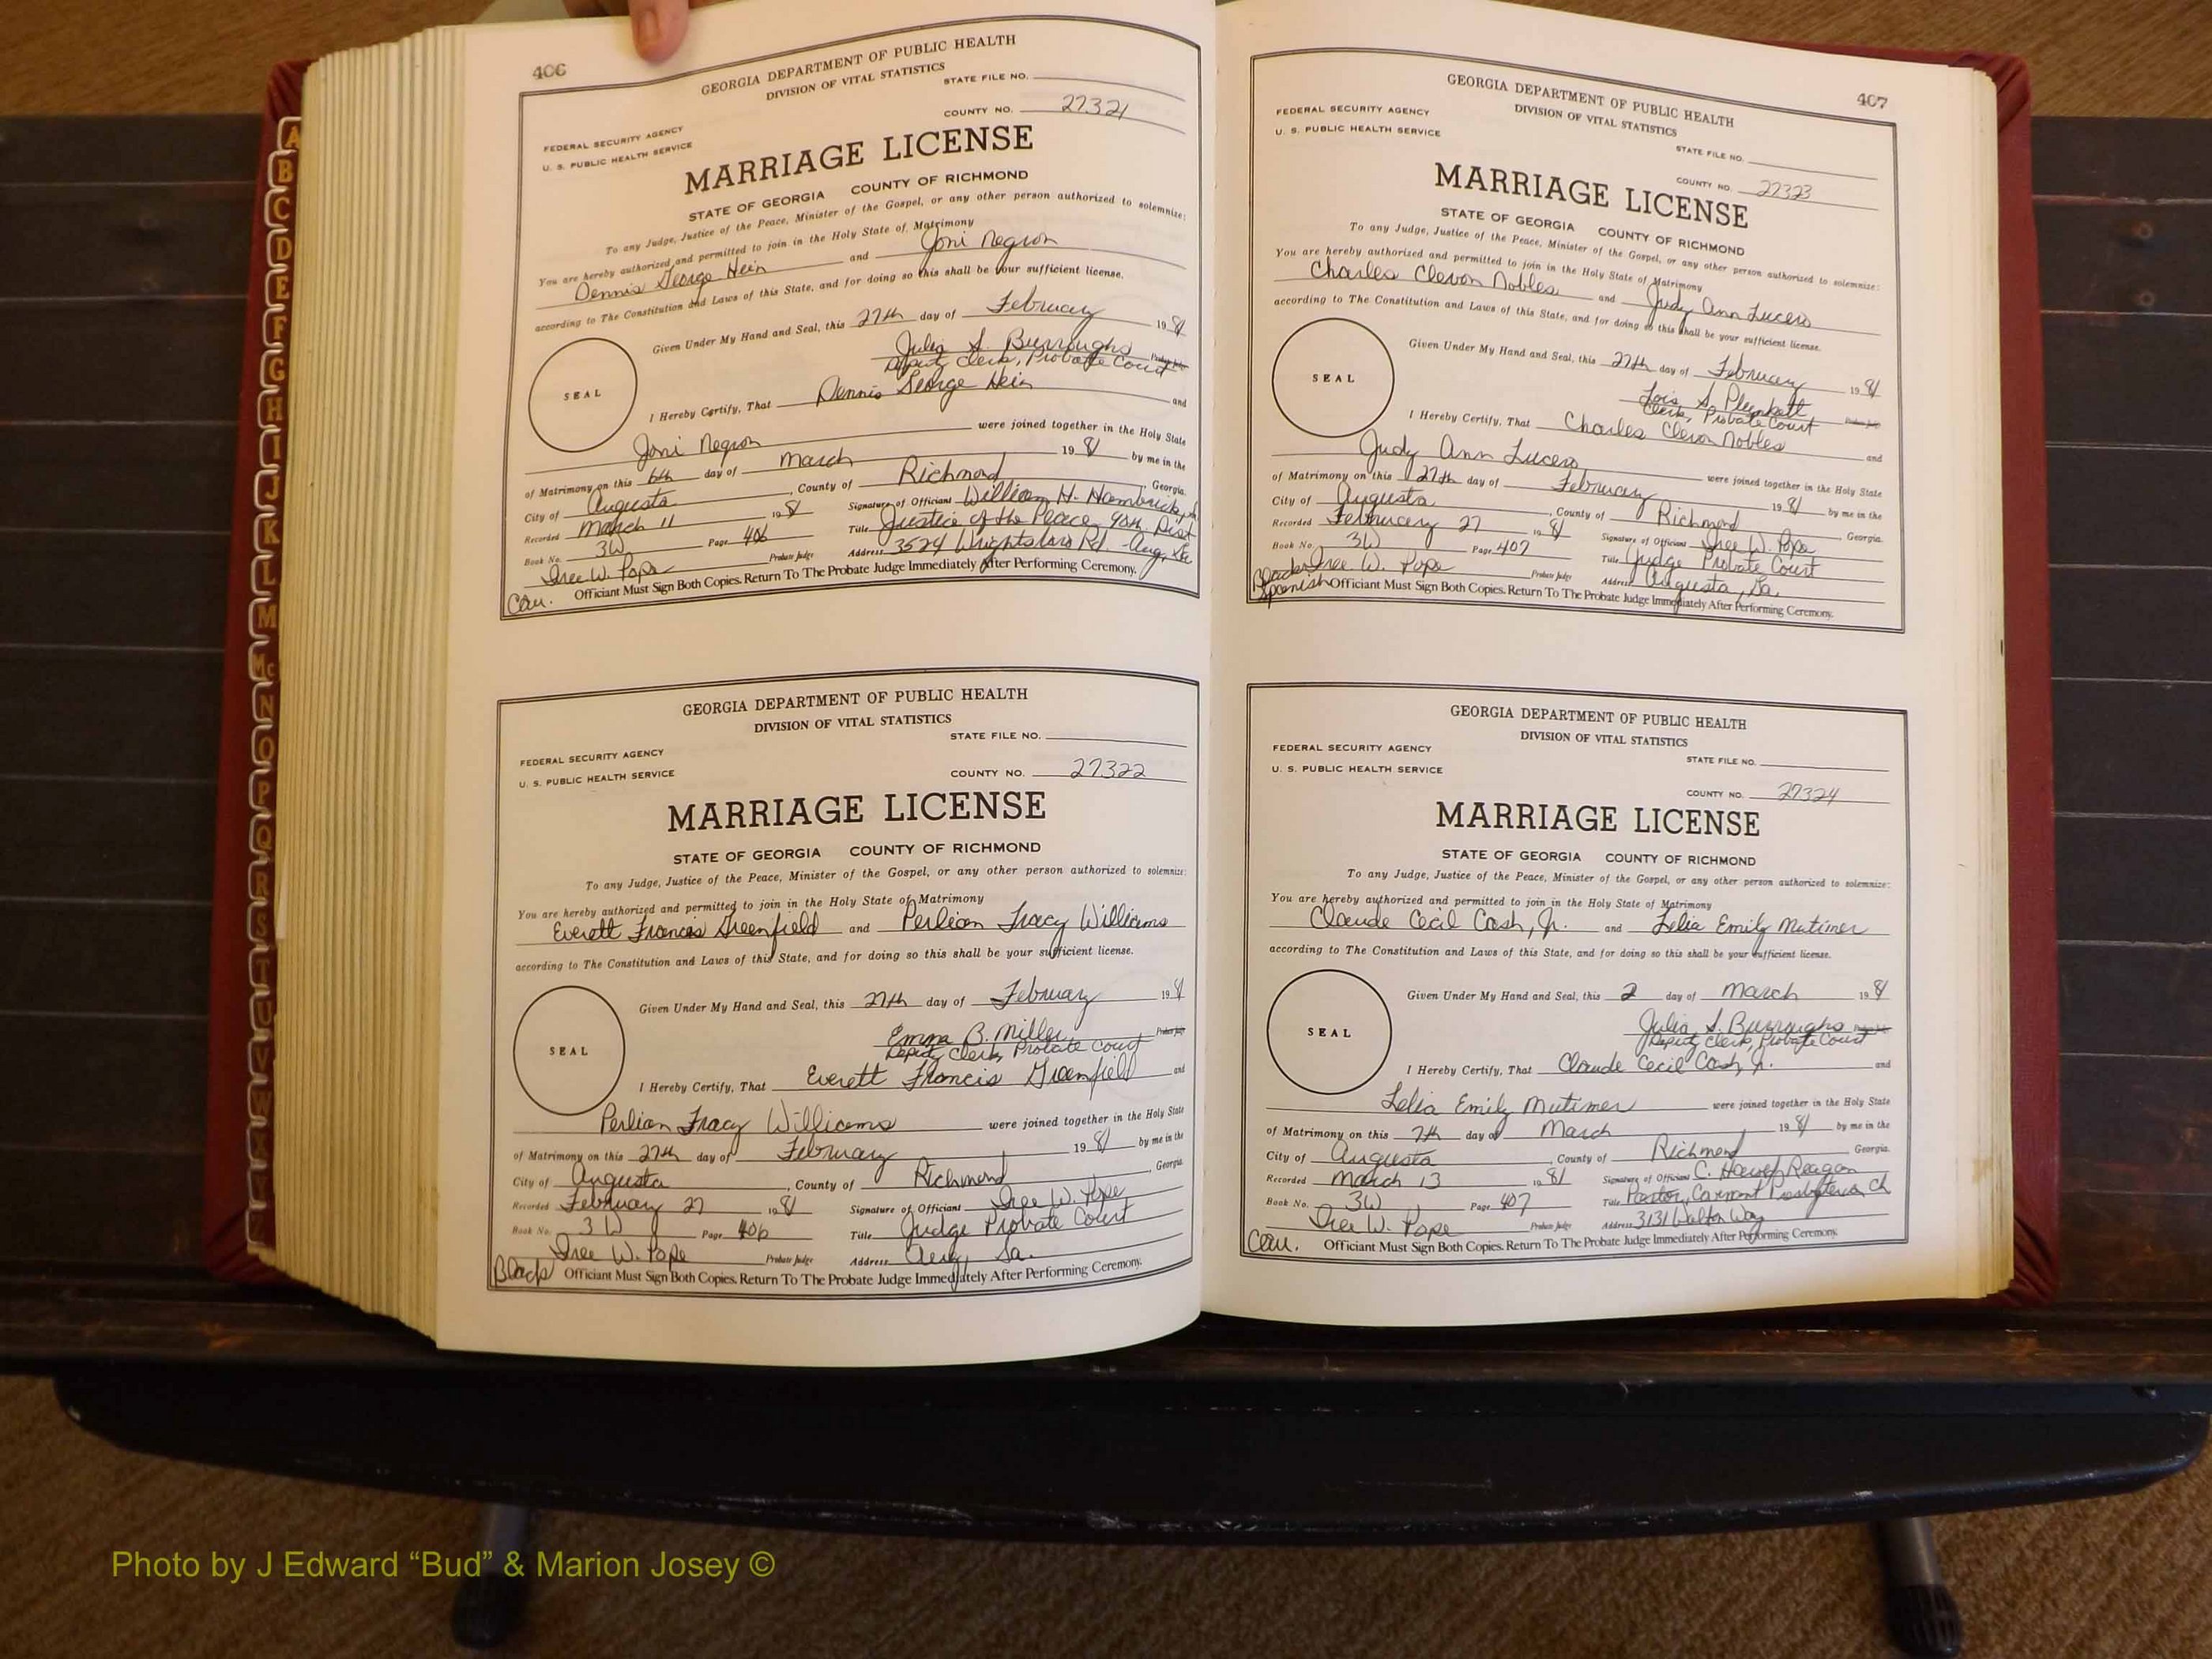 406
GEORGIA DEPARTMENT OF PUBLIC HEALTH
DIVISION OF VITAL STATISTICS
STATE FILE NO.
COUNTY NO. 27321
FEDERAL SECURITY AGENCY
U. S. PUBLIC HEALTH SERVICE
MARRIAGE LICENSE
STATE OF GEORGIA COUNTY OF RICHMOND
To any Judge, Justice of the Peace, Minister of the Gospel, or any other person authorized to solemnize:
You are hereby authorized and permitted to join in the Holy State of Matrimony
Dennis George Hein and Joni Negron
according to The Constitution and Laws of this State, and for doing so this shall be your sufficient license.
Given Under My Hand and Seal, this 27th day of February 1981
Julia S. Burroughs
Deputy Clerk, Probate Court Probate Judge
SEAL
I Hereby Certify, That Dennis George Hein and
Joni Negron were joined together in the Holy State
of Matrimony on this 6th day of March 1981 by me in the
City of Augusta, County of Richmond, Georgia.
Recorded March 11 1981 Signature of Officiant William H. Hambrick, Jr.
Book No. 3W Page 406 Title Justice of the Peace 90th Dist
Iree W. Pope Probate Judge Address 3524 Wrightsboro Rd. - Aug, Ga
Cau. Officiant Must Sign Both Copies. Return To The Probate Judge Immediately After Performing Ceremony.
GEORGIA DEPARTMENT OF PUBLIC HEALTH
DIVISION OF VITAL STATISTICS
STATE FILE NO.
FEDERAL SECURITY AGENCY
U. S. PUBLIC HEALTH SERVICE
COUNTY NO. 27322
MARRIAGE LICENSE
STATE OF GEORGIA COUNTY OF RICHMOND
To any Judge, Justice of the Peace, Minister of the Gospel, or any other person authorized to solemnize:
You are hereby authorized and permitted to join in the Holy State of Matrimony
Everett Francis Greenfield and Perlian Tracy Williams
according to The Constitution and Laws of this State, and for doing so this shall be your sufficient license.
Given Under My Hand and Seal, this 27th day of February 1981
Emma B. Miller Probate Judge
Deputy Clerk, Probate Court
SEAL
I Hereby Certify, That Everett Francis Greenfield and
Perlian Tracy Williams were joined together in the Holy State
of Matrimony on this 27th day of February 1981 by me in the
City of Augusta, County of Richmond, Georgia.
Recorded February 27 1981 Signature of Officiant Iree W. Pope
Book No. 3W Page 406 Title Judge Probate Court
Iree W. Pope Probate Judge Address Aug, Ga.
Black Officiant Must Sign Both Copies. Return To The Probate Judge Immediately After Performing Ceremony.
407
GEORGIA DEPARTMENT OF PUBLIC HEALTH
DIVISION OF VITAL STATISTICS
FEDERAL SECURITY AGENCY
U. S. PUBLIC HEALTH SERVICE
STATE FILE NO.
COUNTY NO. 27323
MARRIAGE LICENSE
STATE OF GEORGIA COUNTY OF RICHMOND
To any Judge, Justice of the Peace, Minister of the Gospel, or any other person authorized to solemnize:
You are hereby authorized and permitted to join in the Holy State of Matrimony
Charles Clevon Nobles and Judy Ann Lucero
according to The Constitution and Laws of this State, and for doing so this shall be your sufficient license.
Given Under My Hand and Seal, this 27th day of February 1981
Lois S. Plunkett
Clerk, Probate Court Probate Judge
SEAL
I Hereby Certify, That Charles Clevon Nobles and
Judy Ann Lucero were joined together in the Holy State
of Matrimony on this 27th day of February 1981 by me in the
City of Augusta, County of Richmond Georgia.
Recorded February 27 1981 Signature of Officiant Iree W. Pope
Book No. 3W Page 407 Title Judge Probate Court
Iree W. Pope Probate Judge Address Augusta, Ga.
Black & Spanish Officiant Must Sign Both Copies. Return To The Probate Judge Immediately After Performing Ceremony.
GEORGIA DEPARTMENT OF PUBLIC HEALTH
DIVISION OF VITAL STATISTICS
FEDERAL SECURITY AGENCY
U. S. PUBLIC HEALTH SERVICE
STATE FILE NO.
COUNTY NO. 27324
MARRIAGE LICENSE
STATE OF GEORGIA COUNTY OF RICHMOND
To any Judge, Justice of the Peace, Minister of the Gospel, or any other person authorized to solemnize:
You are hereby authorized and permitted to join in the Holy State of Matrimony
Claude Cecil Cash, Jr. and Lelia Emily Mutimer
according to The Constitution and Laws of this State, and for doing so this shall be your sufficient license.
Given Under My Hand and Seal, this 2 day of March 1981
Julia S. Burroughs Probate Judge
Deputy Clerk, Probate Court
SEAL
I Hereby Certify, That Claude Cecil Cash, Jr. and
Lelia Emily Mutimer were joined together in the Holy State
of Matrimony on this 7th day of March 1981 by me in the
City of Augusta, County of Richmond Georgia.
Recorded March 13 1981 Signature of Officiant C. Reagan
Book No. 3W Page 407 Title Pastor, Presbyterian Ch
Iree W. Pope Probate Judge Address 3131 Walton Way
Cau. Officiant Must Sign Both Copies. Return To The Probate Judge Immediately After Performing Ceremony.
A
B
C
D
E
F
G
H
I
J
K
L
M
Mc
N
O
P
Q
R
S
T
U
V
W
Photo by J Edward “Bud” & Marion Josey ©